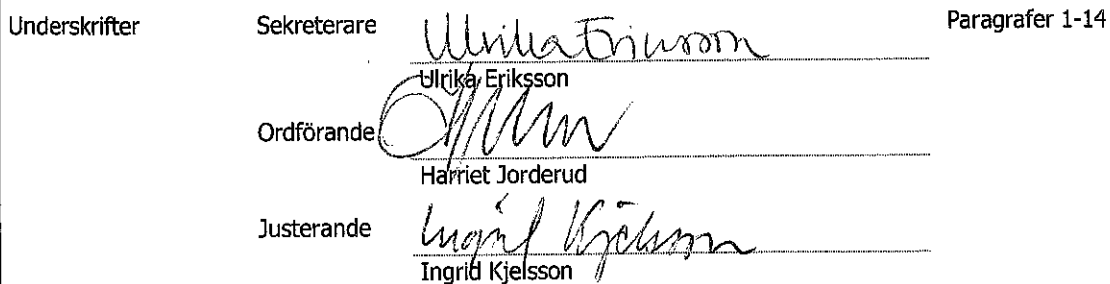 Underskrifter Sekreterare Ulrika Eriksson Paragrafer 1-14
Ulrika Eriksson
Ordförande
Harriet Jorderud
Justerande Ingrid Kjelsson
Ingrid Kjelsson